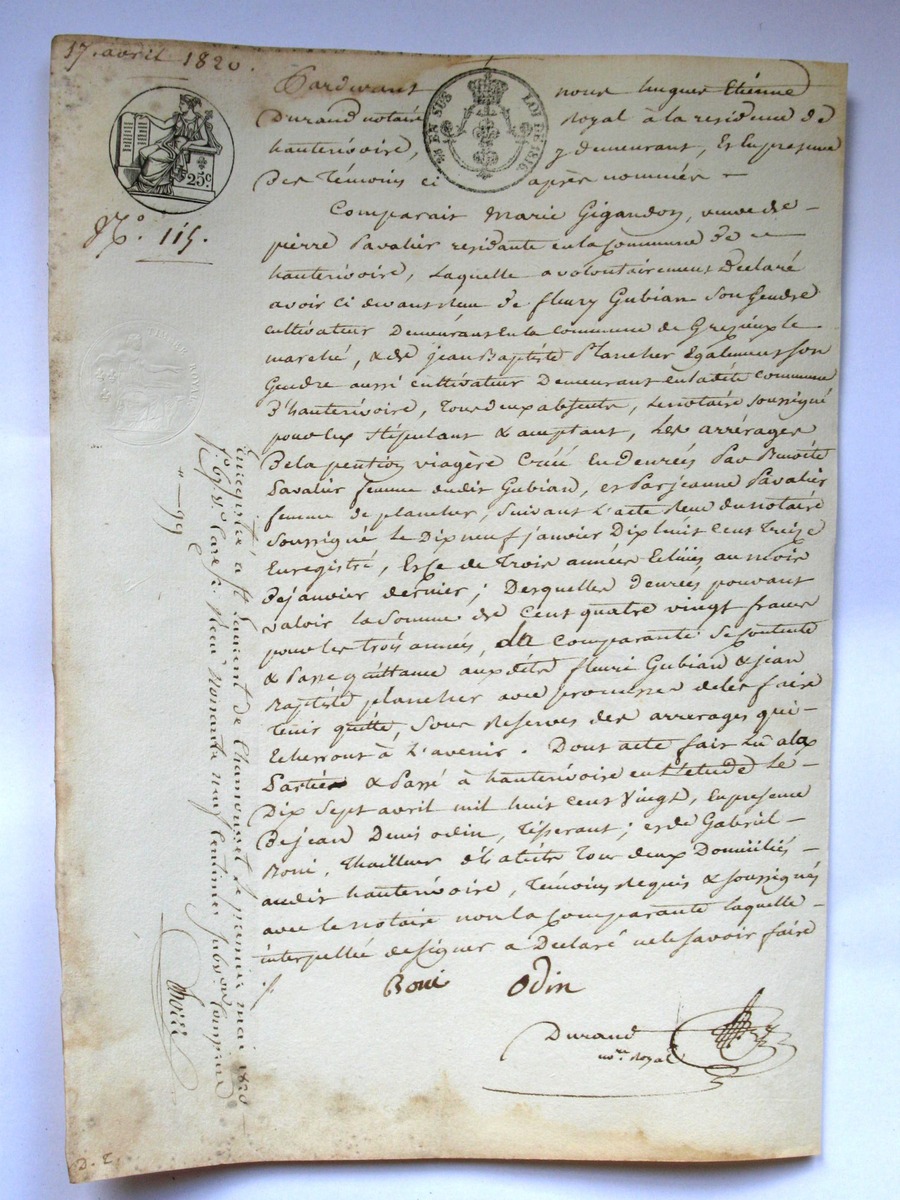 17. avril 1820.
Pardevant nous hugues Etienne
Durand notaire Royal à la residence de
hauterivoire, y demeurant, En la presence
Des Témoins ci après nommés
25c.
EN SUS
LOI DE 1816
N.o 115.
Comparait Marie Gigandon, veuve de
pierre Pavalier residante en la Commune de
hauterivoire, Laquelle a volontairement Déclaré
avoir ci devant Reçu De fleury Gubian Son Gendre
cultivateur Demeurant en la Commune de Grezieux le
marché, & de jean Baptiste Plancher Egalement son
Gendre aussi cultivateur Demeurant en ladite commune
D'hauterivoire, Tous deux absents, le notaire soussigné
pour Eux stipulant & acceptant, Les arrérages
De la pention viagère Créé en denrées Par Benoite
Pavalier femme dudit Gubian, et Par jeanne Pavalier
femme de plancher, Suivant L'acte Reçu du notaire
Soussigné Le Dix neuf janvier Dix huit Cent Treize
Enregistré, Et ce de Trois années Echues au mois
De janvier dernier; Desquelles denrées pouvant
valoir la Somme de Cent quatre vingt francs
pour les trois années, La Comparante Se Contente
& Passe quittance auxdits fleuri Gubian & jean
Baptiste plancher avec promesse de les faire
tenir quitte, Sous Reserves des arrerages qui
Echerront à L'avenir. Dont acte fait Lû a la
Partie & Passé à hauterivoire en L'etude Le
Dix Sept avril mil huit Cent Vingt, En presence
De jean Denis odin, Tisserant; et de Gabriel
Boni, Thailleur d'habits Tous deux Domiciliés
audit hauterivoire, Témoins Requis & soussignés
avec le notaire non la Comparante laquelle
interpellée de signer a Déclaré ne le Savoir faire
Boni Odin
Durand
no.re Royal
Enregistré à St Laurent de Chamousset le premier mai 1820
f.o 67 v.o Case 8. Reçu Nonante neuf Centimes subvon Comprise
"—99
D. E.